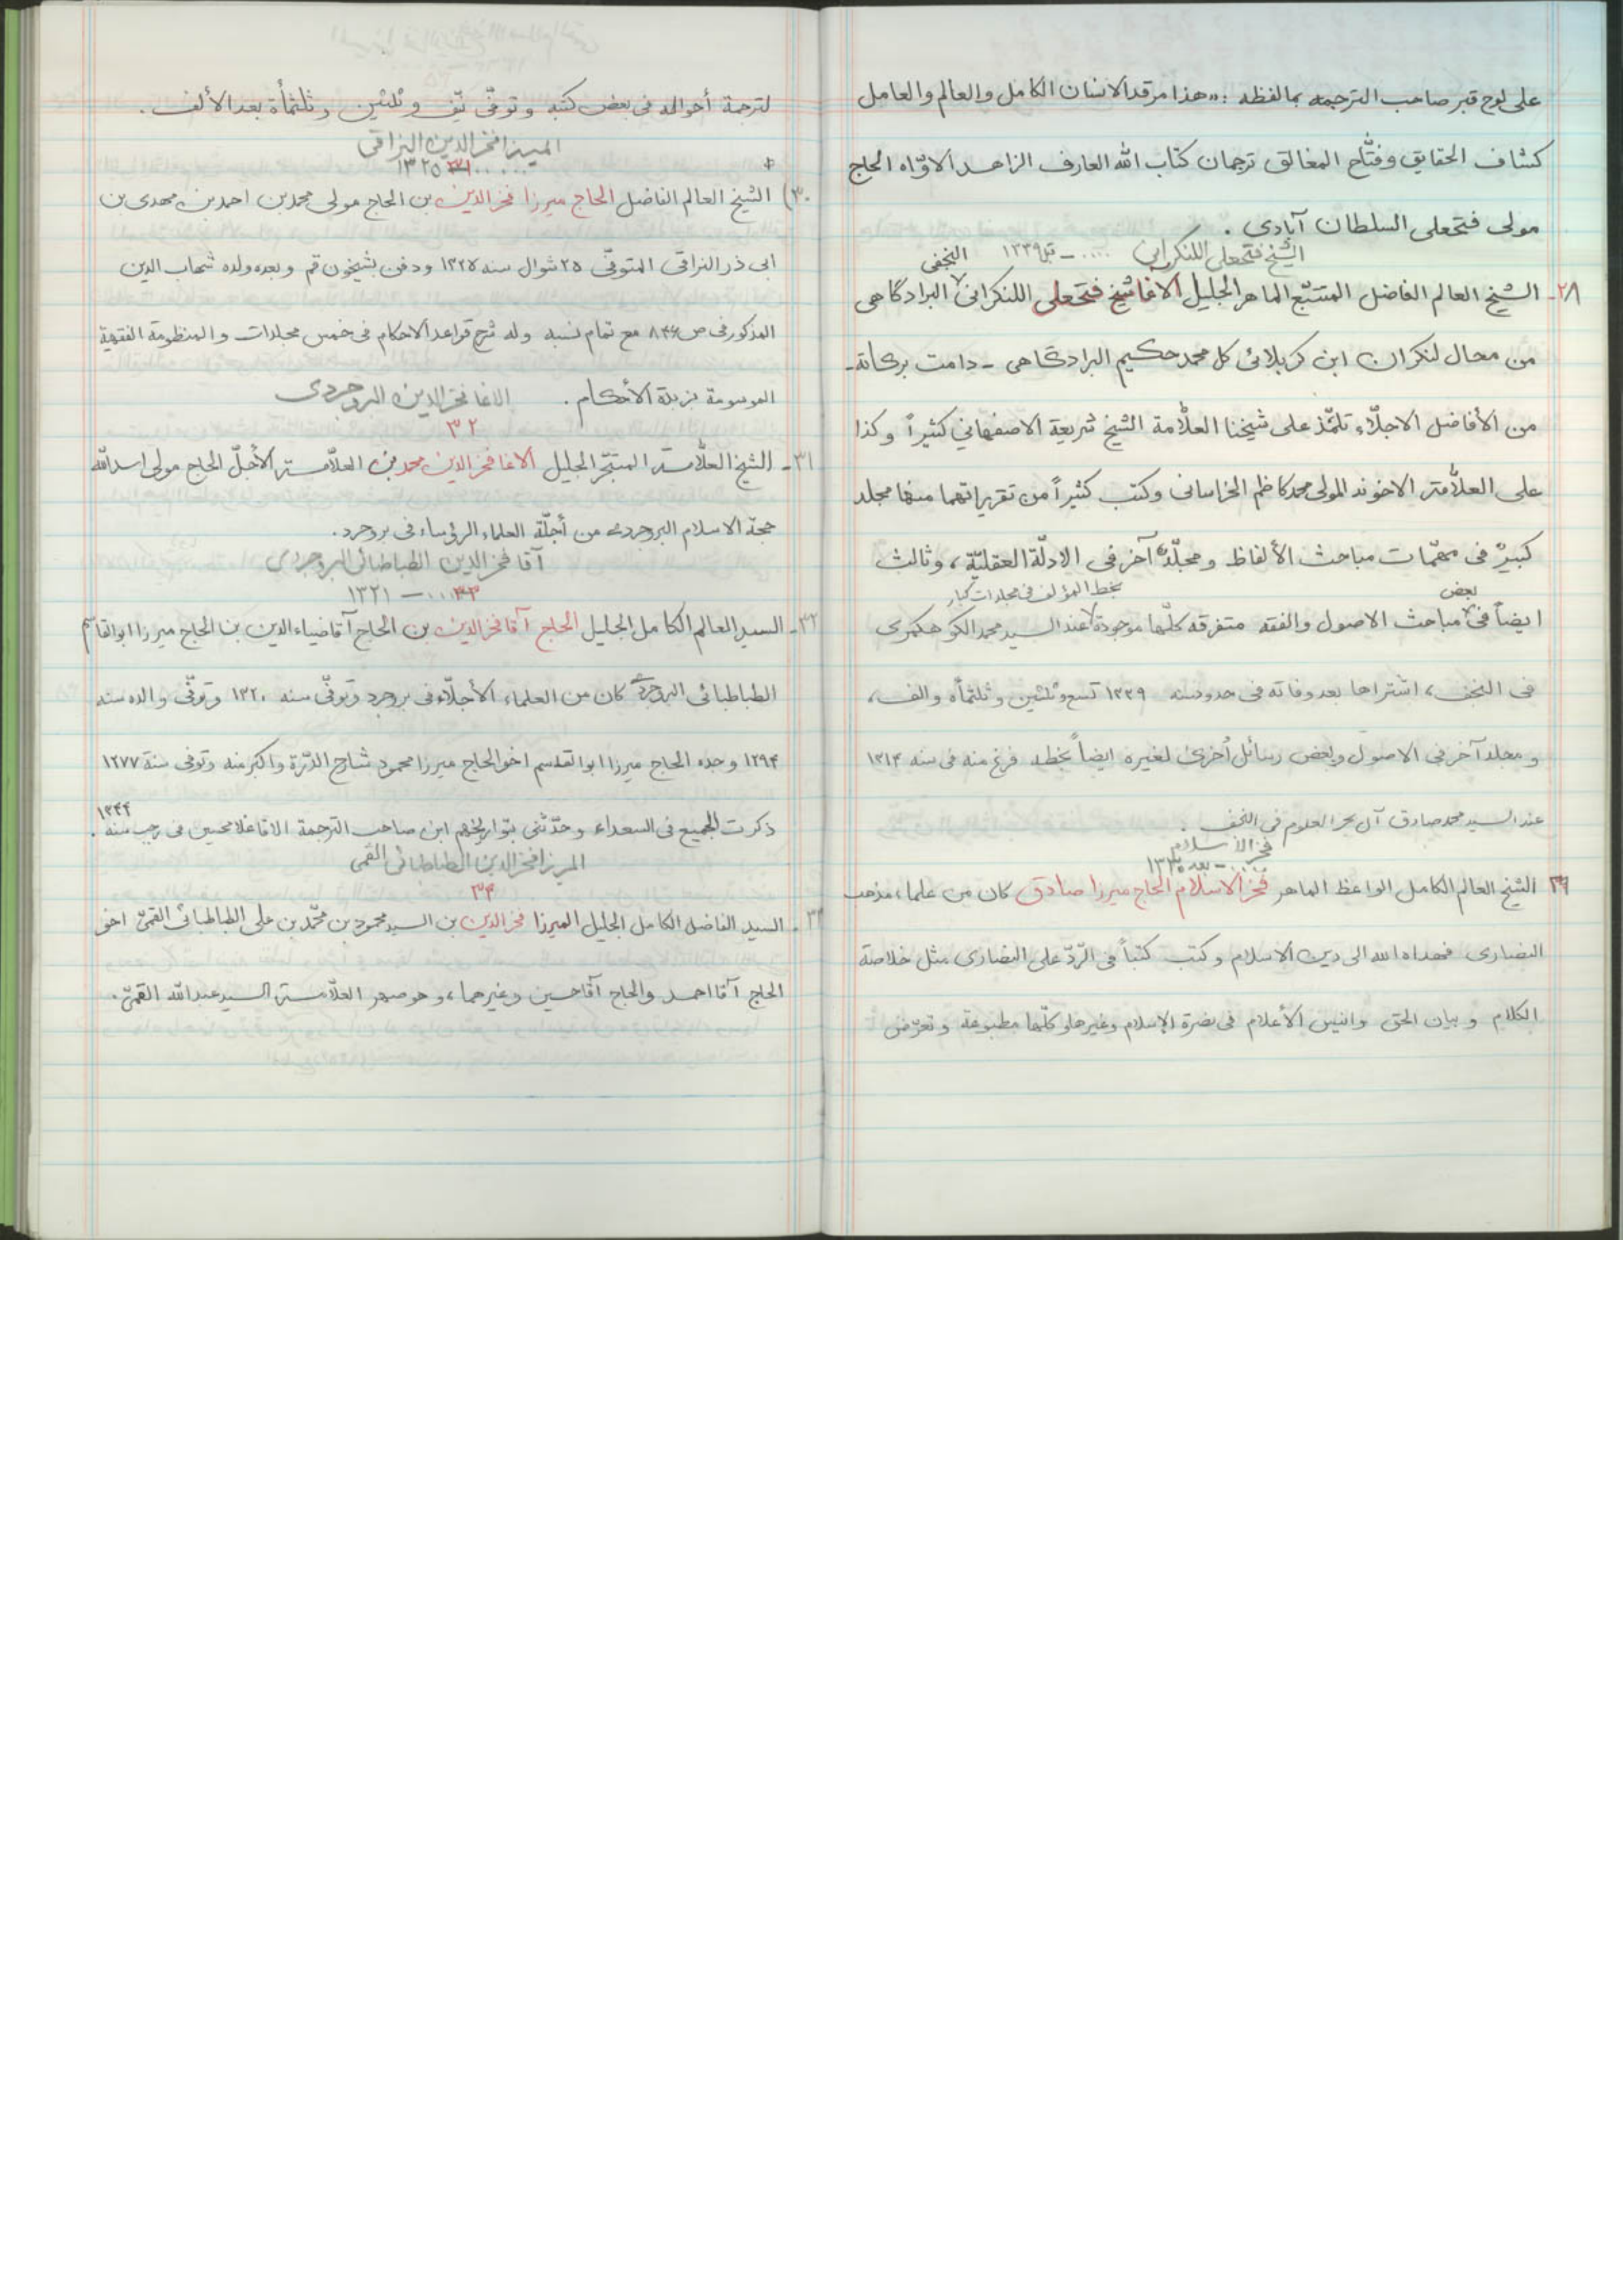 على لوح قبر صاحب الترجمه بمالفظه : «هذا مرقد الانسان الكامل والعالم والعامل
كشاف الحقايق وفتّاح المغالق ترجمان كتاب الله العارف الزاهد الاوّاه الحاج
مولى فتحعلى السلطان آبادى .
الشيخ فتحعلى اللنكرانى ..... – قبل ١٣٣٩
النجفى
٢٨- الشيخ العالم الفاضل المتتبّع الماهر الجليل الآقا شيخ فتحعلى اللنكرانى البرادگاهى
من محال لنكران ابن كربلائى كل محمد حكيم البرادگاهى - دامت بركاته -
من الأفاضل الاجلّاء تلمّذ على شيخنا العلّامة الشيخ شريعة الاصفهاني كثيراً وكذا
على العلّامة الاخوند المولى محمد كاظم الخراسانى وكتب كثيراً من تقريراتهما منها مجلد
كبيرٌ فى مهمّات مباحث الألفاظ ومجلّد آخر فى الادلّة العقليّة ، وثالث
بعض
بخط المؤلف فى مجلدات كبار
ايضاً فى مباحث الاصول والفقه متفرقه كلّها موجودة عند السيد محمد الكوهكمرى
فى النجف ، اشتراها بعد وفاته فى حدود سنه ١٣٣٩ تسع وثلثين وثلثمأه والف ،
ومجلد آخر فى الاصول وبعض رسائل أخرى لغيره ايضاً بخطه فرغ منه فى سنه ١٣١٤
عند السيد محمد صادق آل بحر العلوم فى النجف .
فخر الاسلام
..... – بعد ١٣٣٠
٢٩ الشيخ العالم الكامل الواعظ الماهر فخر الاسلام الحاج ميرزا صادق كان من علماء مذهب
النصارى فهداه الله الى دين الاسلام وكتب كتباً فى الرّدّ على النصارى مثل خلاصة
الكلام وبيان الحق وانيس الأعلام فى نصرة الإسلام وغيرها وكلّها مطبوعة وتعرّض
لترجمة أحواله فى بعض كتبه وتوفّى نيّف وثلثين وثلثمأة بعد الألف .
الميرزا فخر الدين النراقى
..... ١٣٢٥
٣٠) الشيخ العالم الفاضل الحاج ميرزا فخر الدين بن الحاج مولى محمد بن احمد بن مهدى بن
ابى ذر النراقى المتوفّى ٢٥ شوال سنه ١٣٢٥ ودفن بشيخون قم وبعده ولده شهاب الدين
المذكور فى ص ٨٤٦ مع تمام نسبه وله شرح قواعد الاحكام فى خمس مجلدات والمنظومة الفقهية
الموسومة بزبدة الأحكام .
الاغا فخر الدين البروجردى
٣٢
٣١- الشيخ العلّامة المتبحّر الجليل الاغا فخر الدين محمد بن العلّامة الأجلّ الحاج مولى اسد الله
حجة الاسلام البروجردى من أجلّة العلماء الرؤساء فى بروجرد .
آقا فخر الدين الطباطبائى البروجردى
٣٣ ..... – ١٣٢١
٣٢- السيد العالم الكامل الجليل الحاج آقا فخر الدين بن الحاج آقا ضياء الدين بن الحاج ميرزا ابو القاسم
الطباطبائى البروجردى كان من العلماء الأجلّاء فى بروجرد وتوفّى سنه ١٣٢٠ وتوفّى والده سنه
١٢٩٤ وجده الحاج ميرزا ابو القاسم اخو الحاج ميرزا محمود شارح الدّرة واكبر منه وتوفى سنة ١٢٧٧
ذكرت الجميع فى السعداء وحدّثنى بتواريخهم ابن صاحب الترجمة الاقا غلامحسين فى رجب سنه ١٣٤٤ .
الميرزا فخر الدين الطباطبائى القمى
٣٤
٣٣- السيد الفاضل الكامل الجليل الميرزا فخر الدين بن السيد محمود بن محمّد بن على الطباطبائى القمىّ اخو
الحاج آقا احمد والحاج آقا حسين وغيرهما ، وهو صهر العلّامة السيد عبد الله القمىّ .